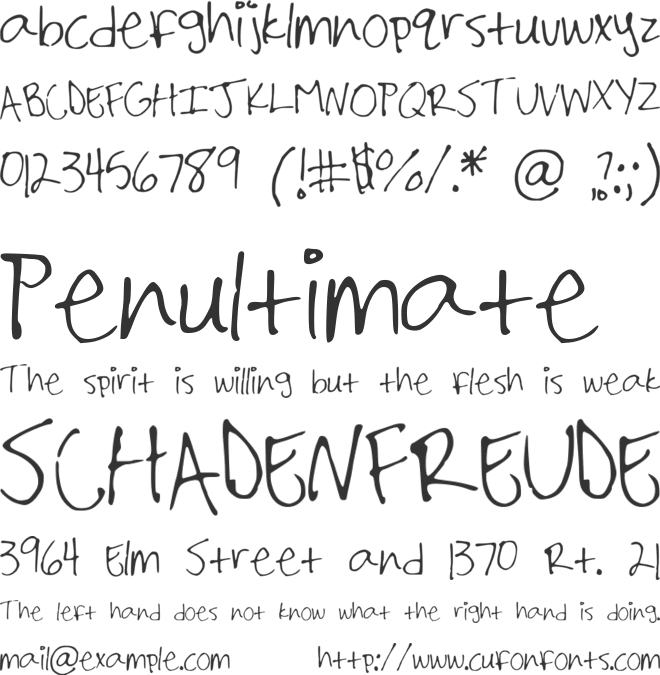 abcdefghijklmnopqrstuvwxyz
ABCDEFGHIJKLMNOPQRSTUVWXYZ
0123456789 (!#$%/.* @ ?:;,)
Penultimate
The spirit is willing but the flesh is weak
SCHADENFREUDE
3964 Elm Street and 1370 Rt. 21
The left hand does not know what the right hand is doing.
mail@example.com http://www.cufonfonts.com